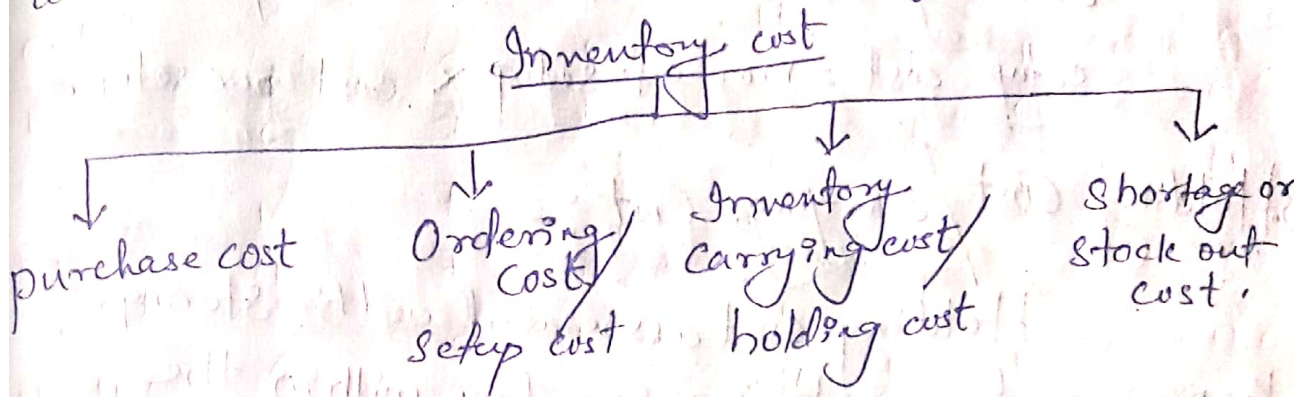 Inventory cost
purchase cost
Ordering/
cost/
setup cost
Inventory
carrying cost/
holding cost
Shortage or
stock out
cost.